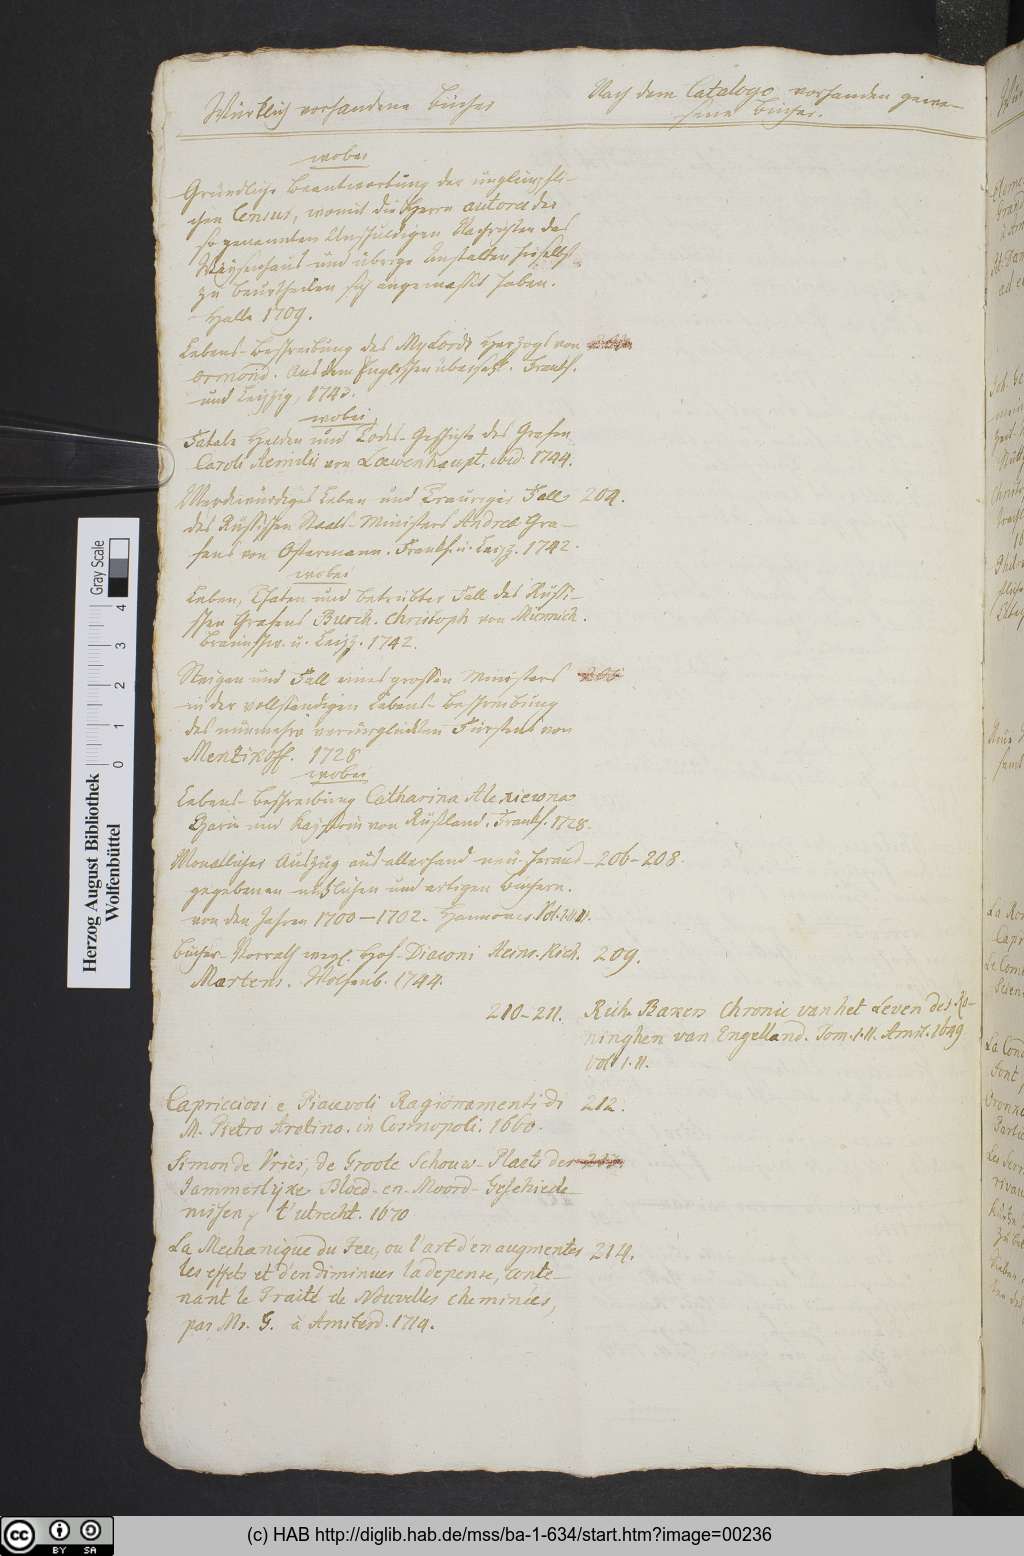 Würklich vorhandene Bücher
Nach dem Catalogo vorhanden gewe-
sene Bücher.
wobei
Gründliche Beantwortung der unglimpfli-
chen Census, womit die Herrn autores der
so genannten Unschuldigen Nachrichten des
Waysenhaus und übrige Anstalten hieselbst
zu beurtheilen sich angemasset haben.
Halle 1709.
Lebens-Beschreibung des Mylords Herzogs von
Ormond. Aus dem Englischen übersetzt. Franckf.
und Leipzig, 1745.
wobei
Fatale Helden und Todes-Geschichte des Grafen
Caroli Aemilii von Loewenhaupt, ibid. 1744.
Merckwürdiges Leben und Trauriger Fall 204.
des Russischen Staats-Ministers Andreæ Gra-
fens von Ostermann. Franckf. u. Leipz. 1742.
wobei
Leben, Thaten und betrübter Fall des Russi-
schen Grafens Burch. Christoph von Münnich.
Braunschw. u. Leipz. 1742.
Steigen und Fall eines grossen Ministers 205
in der vollständigen Lebens-Beschreibung
des nunmehro verunglückten Fürstens von
Menzikoff. 1728
wobei
Lebens-Beschreibung Catharina Alexiewna
Czarin und Kayserin von Rußland. Franckf. 1728.
Monatlicher Auszug aus allerhand neu-heraus- 206-208.
gegebenen nützlichen und artigen Büchern.
von den Jahren 1700-1702. Hannover. Vol. I. II. III.
Bücher-Vorrath weyl. Hof-Diaconi Heinr. Rich. 209.
Martens. Wolfenb. 1744.
210-211. Rich. Bakers Chronic van het Leven des Ko-
ninghen van Engelland. Tom. I. II. Amst. 1649
Vol. I. II.
Capricciosi e Piacevoli Ragionamenti di 212.
M. Pietro Aretino. in Cosmopoli. 1660.
Simon de Vries, de Groote Schouw-Plaets der
Jammerlijke Bloed-en-Moord-Geschiede-
nissen, t'utrecht. 1670
La Mechanique du Feu, ou l'art d'en augmenter 214.
les effets et d'en diminuer la depense, conte-
nant le Traité de Nouvelles cheminées,
par Mr. G. à Amsterd. 1714.
Herzog August Bibliothek
Wolfenbüttel
Gray Scale
0 1 2 3 4
cc BY SA
(c) HAB http://diglib.hab.de/mss/ba-1-634/start.htm?image=00236